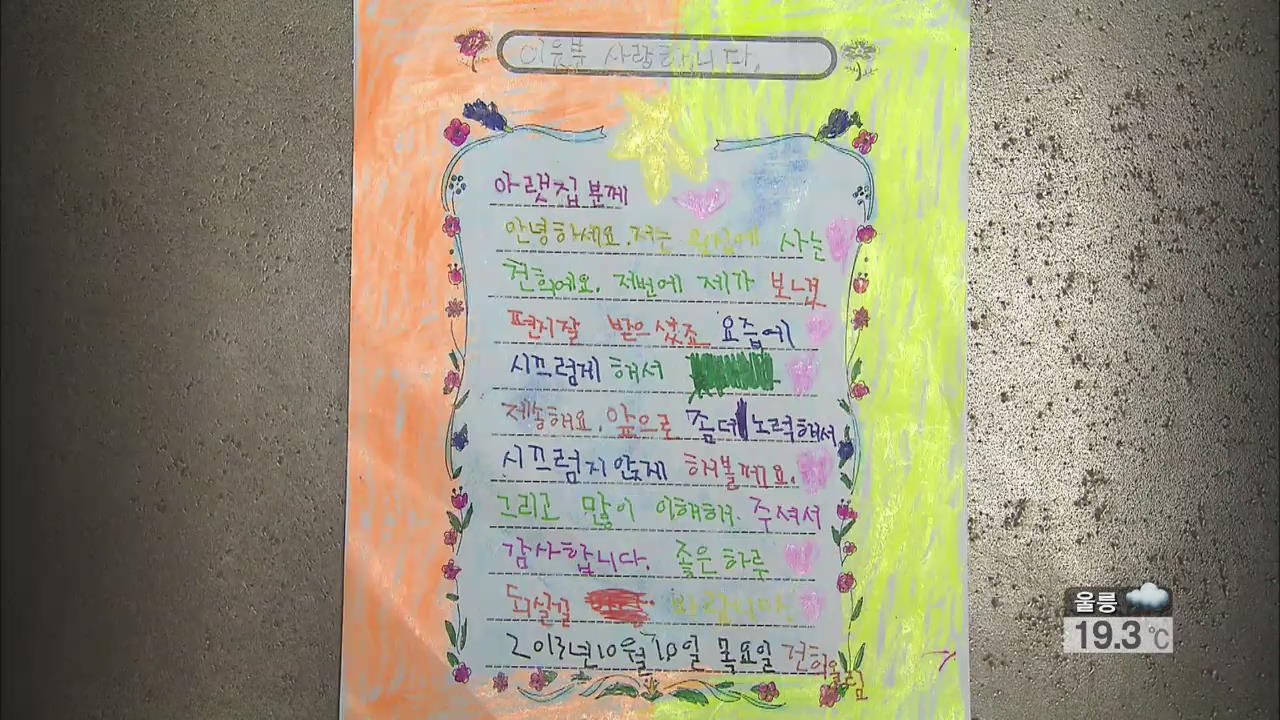 이웃분 사랑합니다.
아랫집분께
안녕하세요. 저는 윗집에 사는
건희에요. 저번에 제가 보낸
편지잘 받으셨죠 요즘에
시끄럽게 해서
제송해요. 앞으로 좀더 노력해서
시끄럽지않게 해볼께요.
그리고 많이 이해해 주셔서
감사합니다. 좋은하루
되실길 바랍니다
2013년10월10일 목요일 건희올림
울릉
19.3℃